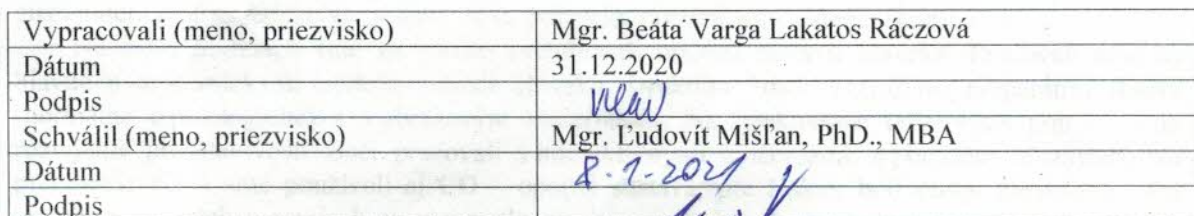 Vypracovali (meno, priezvisko) Mgr. Beáta Varga Lakatos Ráczová
Dátum 31.12.2020
Podpis
Schválil (meno, priezvisko) Mgr. Ľudovít Mišľan, PhD., MBA
Dátum 8.1.2021
Podpis